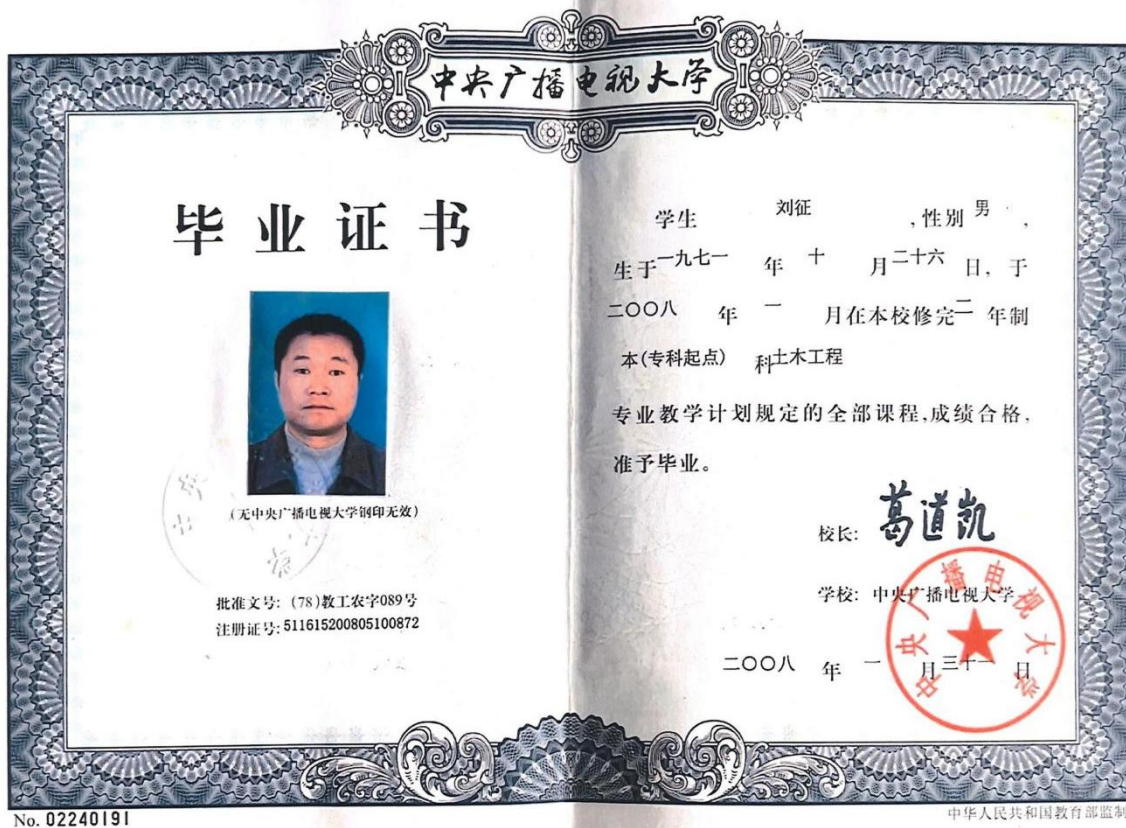 中央广播电视大学
毕业证书
(无中央广播电视大学钢印无效)
批准文号: (78)教工农字089号
注册证号: 511615200805100872
学生 刘征 ,性别 男 ,
生于 一九七一 年 十 月 二十六 日, 于
二〇〇八 年 一 月在本校修完 二 年制
本(专科起点) 科 土木工程
专业教学计划规定的全部课程,成绩合格,
准予毕业。
校长: 葛道凯
学校: 中央广播电视大学
中央广播电视大学
二〇〇八 年 一 月 三十一 日
No. 02240191
中华人民共和国教育部监制